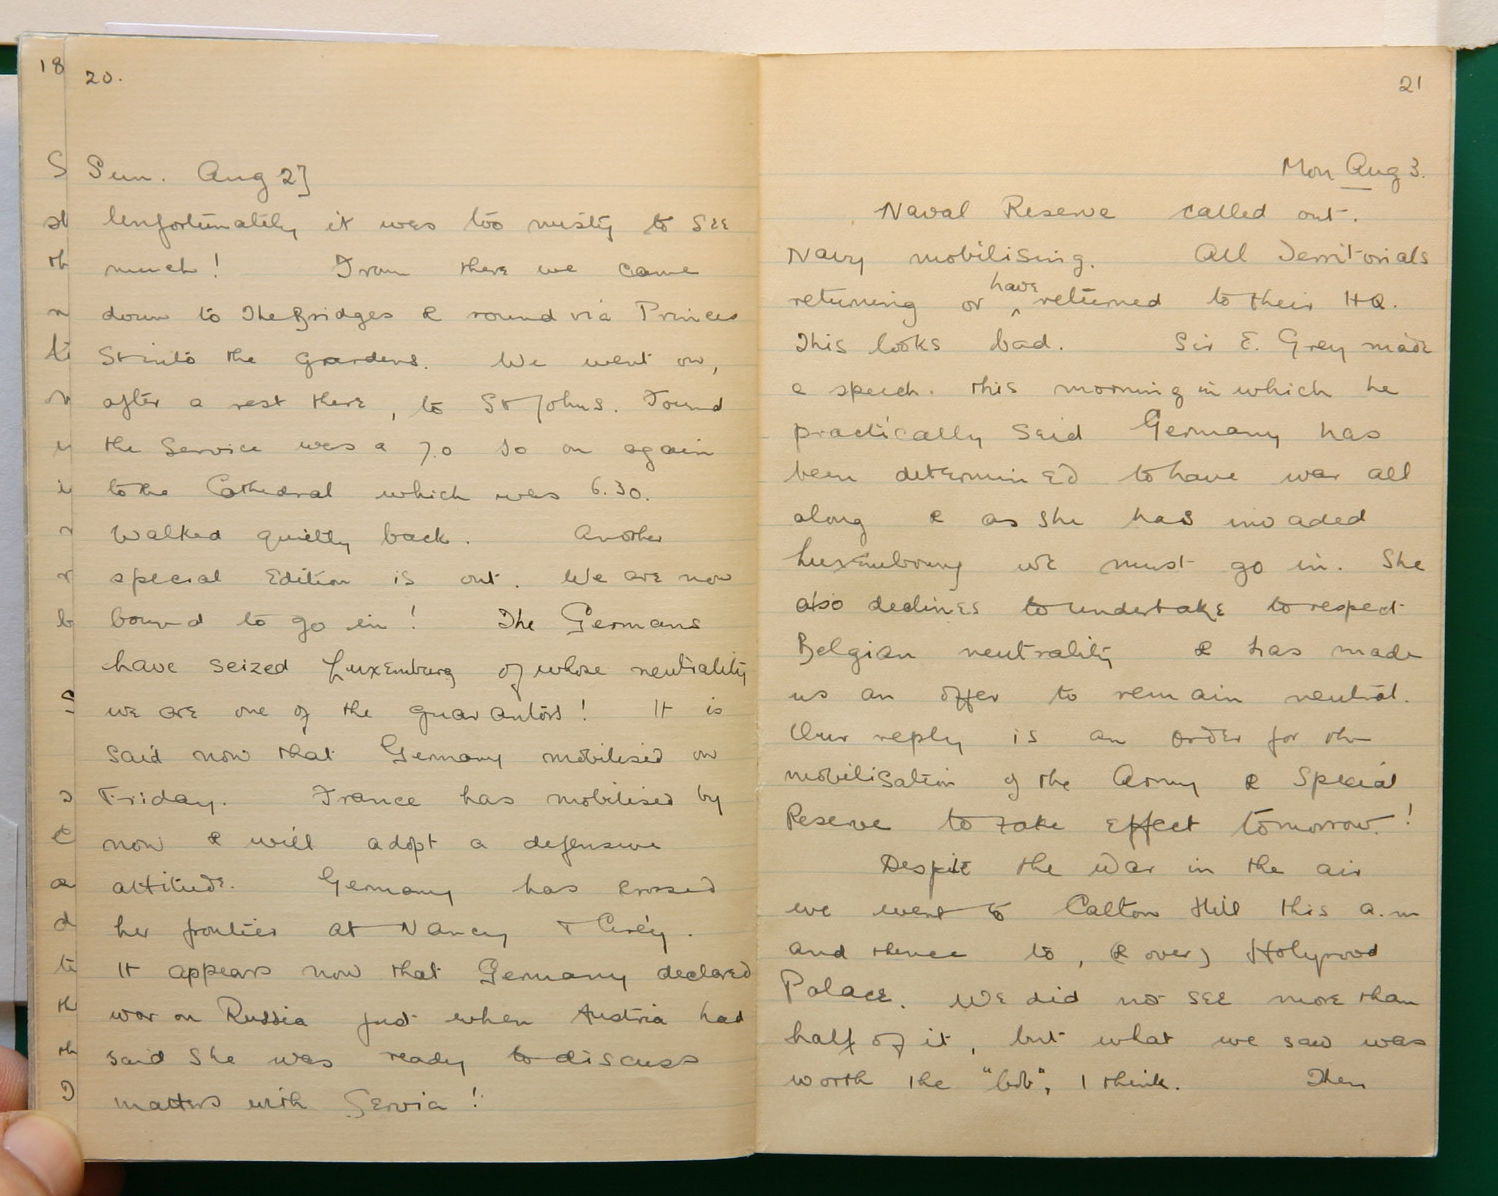 18
20.
Sun. Aug 2]
Unfortunately it was too misty to see
much! From there we came
down to The Bridges & round via Princes
St into the gardens. We went on,
after a rest there, to St Johns. Found
the Service was a 7.0 so on again
to the Cathedral which was 6.30.
Walked quietly back. Another
special Edition is out. We are now
bound to go in! The Germans
have seized Luxemburg of whose neutrality
we are one of the guarantors! It is
said now that Germany mobilised on
Friday. France has mobilised by
now & will adopt a defensive
attitude. Germany has crossed
her frontier at Nancy & Cirey.
It appears now that Germany declared
war on Russia just when Austria had
said she was ready to discuss
matters with Servia!
21
Mon Aug 3.
Naval Reserve called out.
Navy mobilising. All Territorials
returning or have returned to their HQ.
This looks bad. Sir E. Grey made
a speech this morning in which he
practically said Germany has
been determined to have war all
along & as she has invaded
Luxembourg we must go in. She
also declines to undertake to respect
Belgian neutrality & has made
us an offer to remain neutral.
Our reply is an order for the
mobilisation of the Army & Special
Reserve to take effect tomorrow!
Despite the War in the air
we went to Calton Hill this a.m
and thence to, (& over) Holyrood
Palace. We did not see more than
half of it, but what we saw was
worth the "bob", I think. Then